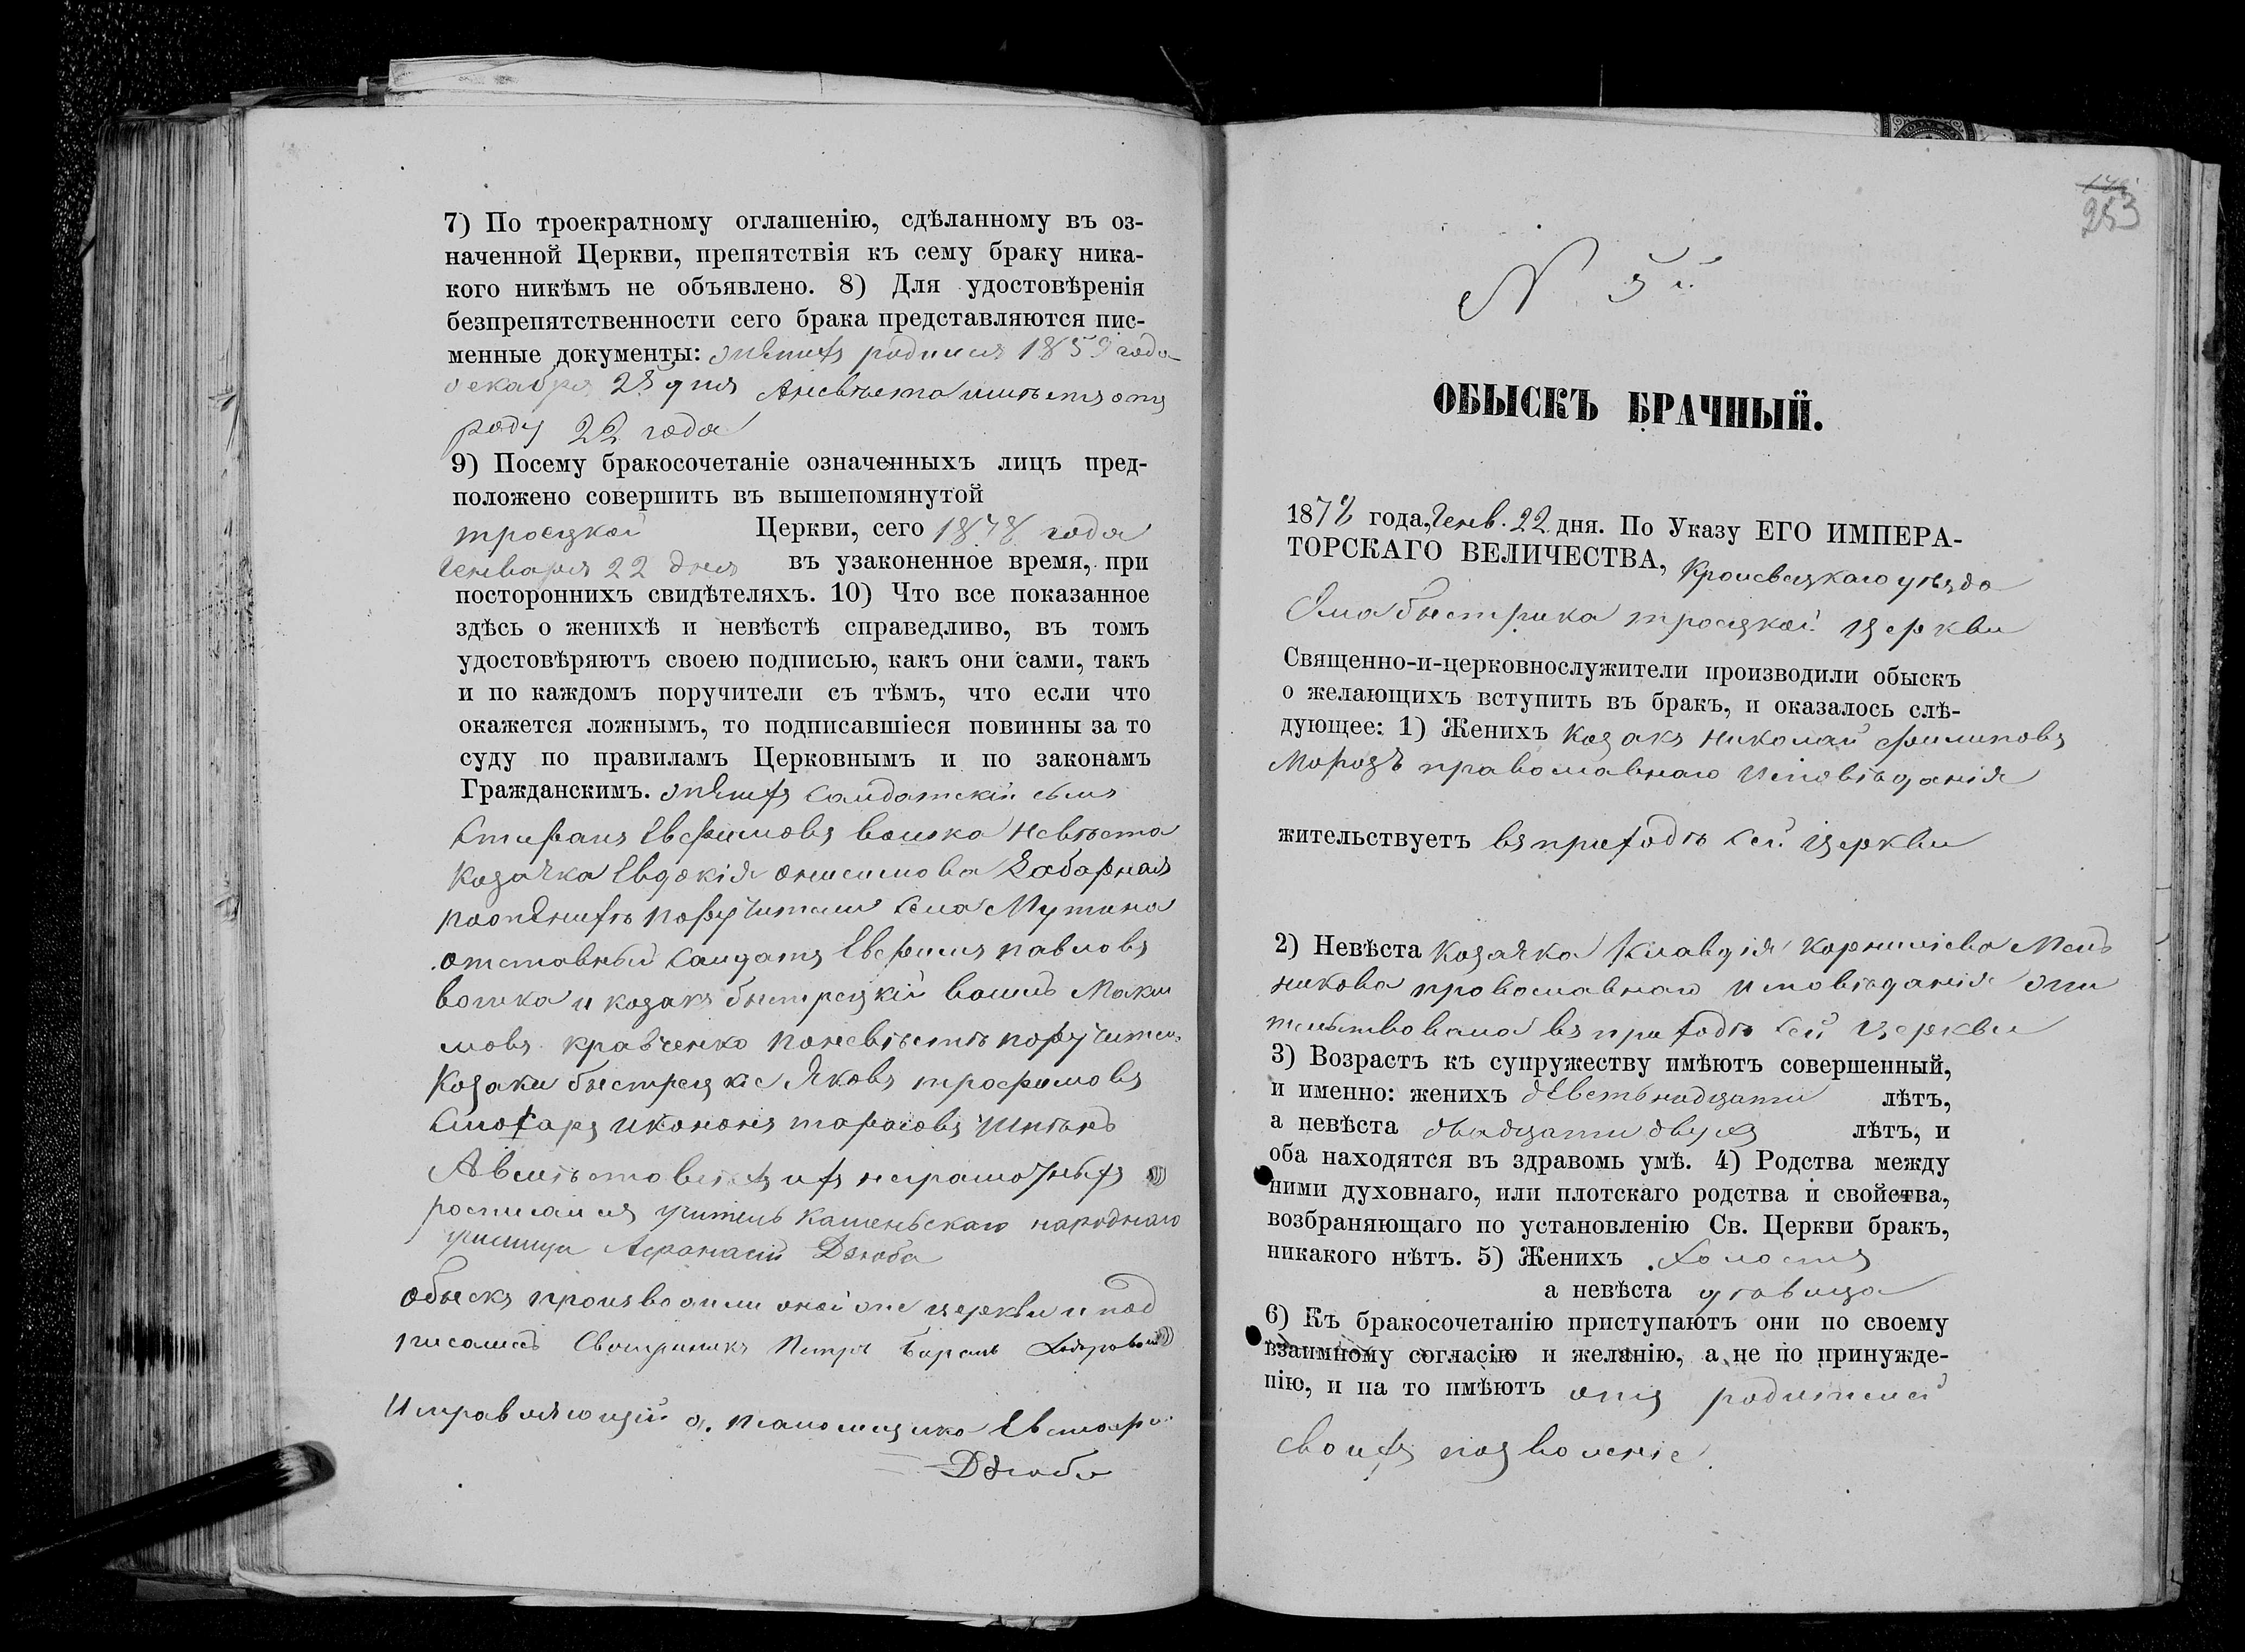 7) По троекратному оглашенію, сдѣланному въ оз-
наченной Церкви, препятствія къ сему браку ника-
кого никѣмъ не объявлено. 8) Для удостовѣренія
безпрепятственности сего брака представляются пис-
менные документы: женихъ родился 1859 года
декабря 25 дня А невѣста имѣетъ отъ
роду 22 года
9) Посему бракосочетаніе означенныхъ лицъ пред-
положено совершить въ вышепомянутой
троецкой Церкви, сего 1878 года
Генваря 22 дня въ узаконенное время, при
постороннихъ свидѣтеляхъ. 10) Что все показанное
здѣсь о женихѣ и невѣстѣ справедливо, въ томъ
удостовѣряютъ своею подписью, какъ они сами, такъ
и по каждомъ поручители съ тѣмъ, что если что
окажется ложнымъ, то подписавшіеся повинны за то
суду по правиламъ Церковнымъ и по законамъ
Гражданскимъ. женихъ солдатскій сынъ
Стефанъ Евфимовъ волика невѣста
козачка Евдокія онисимова Забарная
по женихѣ поручители села Мутина
отставный солдатъ Евфимъ павловъ
волика и козакъ быстрецкій
мовъ кравченко по невѣстѣ поручител.
козаки быстрецкіе Яковъ трофимовъ
Слюсаръ и кононъ тарасовъ
А вмѣсто всѣхъ ихъ неграмотныхъ
росписался учитель Каменьскаго народнаго
училища Афанасій Дзюба
обыскъ производили оной же церкви и под
писались Священникъ Петръ
Исправляющій д. псаломщика
Дзюба
253
N 5й
ОБЫСКЪ БРАЧНЫЙ.
1878 года, Генв. 22 дня. По Указу ЕГО ИМПЕРА-
ТОРСКАГО ВЕЛИЧЕСТВА, Кролевецкаго уѣзда
Села быстрика троецкой церкви
Священно-и-церковнослужители производили обыскъ
о желающихъ вступить въ бракъ, и оказалось слѣ-
дующее: 1) Женихъ козакъ николай филиповъ
Морозъ православнаго исповѣданія
жительствуетъ въ приходѣ сей церкви
2) Невѣста козачка Клавдія корниліева Мель
никова провославнаго исповѣданія жи
тельствовала въ приходѣ сей церкви
3) Возрастъ къ супружеству имѣютъ совершенный,
и именно: женихъ девятьнадцати лѣтъ,
а невѣста двадцати двухъ лѣтъ, и
оба находятся въ здравомь умѣ. 4) Родства между
ними духовнаго, или плотскаго родства и свойства,
возбраняющаго по установленію Св. Церкви бракъ,
никакого нѣтъ. 5) Женихъ холостъ
а невѣста дѣвица
6) Къ бракосочетанію приступаютъ они по своему
взаимному согласію и желанію, а не по принужде-
нію, и на то имѣютъ отъ родителей
своихъ позволеніе.